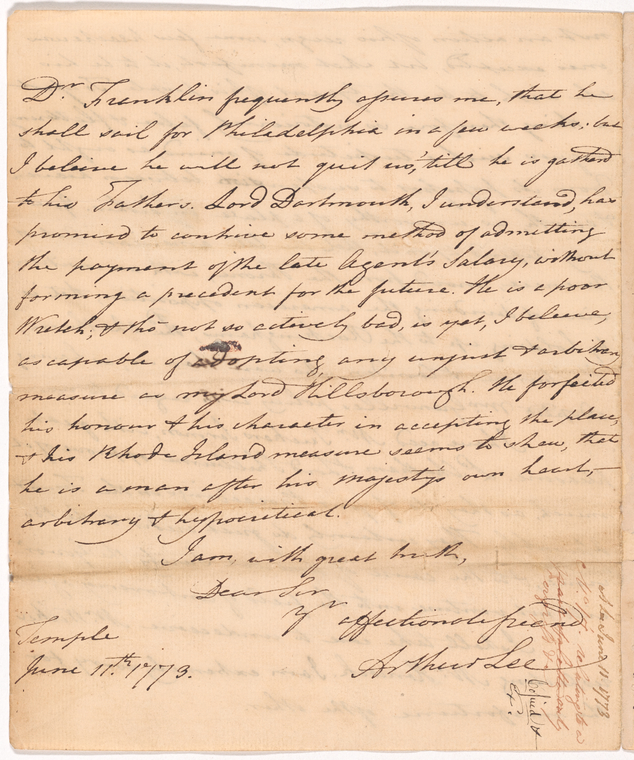 Dr Franklin frequently assures me, that he
shall sail for Philadelphia in a few weeks; but
I beleive he will not quit us, 'till he is gatherd
to his Fathers. Lord Dartmouth, I understand, has
promised to contrive some method of admitting
the payment of the late Agent's Salary, without
forming a precedent for the future. He is a poor
Wretch; & tho' not so actively bad, is yet, I beleeve,
as capable of adopting any unjust & arbitrary
measure as my Lord Hillsborough. He forfeited
his honour & his character in accepting the place,
& his Rhode Island measure seems to shew, that
he is a man after his majestys own heart,
arbitrary & hypocritical.
I am, with great truth,
Dear Sir
Yr affectionate friend
Arthur Lee
Temple
June 11th. 1773.
Copied
11 1773